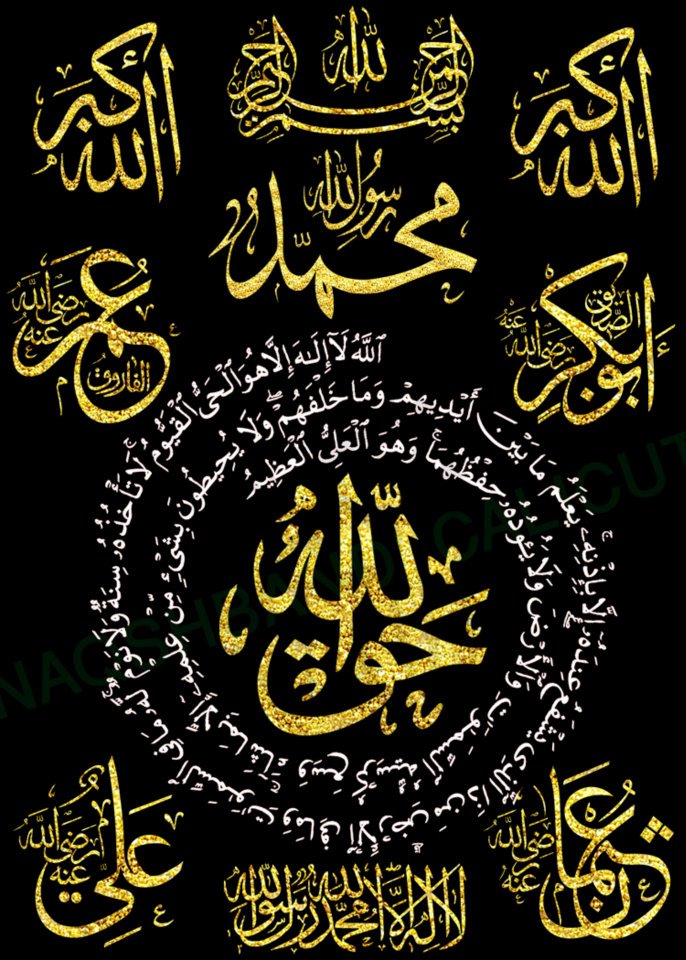 الله أكبر
بسم الله الرحمن الرحيم
الله أكبر
محمد رسول الله
أبو بكر الصديق رضي الله عنه
عمر الفاروق رضي الله عنه
ٱللَّهُ لَآ إِلَٰهَ إِلَّا هُوَ ٱلْحَىُّ ٱلْقَيُّومُ ۚ لَا تَأْخُذُهُۥ سِنَةٌ وَلَا نَوْمٌ ۚ لَّهُۥ مَا فِى ٱلسَّمَٰوَٰتِ وَمَا فِى ٱلْأَرْضِ ۗ مَن ذَا ٱلَّذِى يَشْفَعُ عِندَهُۥٓ إِلَّا بِإِذْنِهِۦ ۚ يَعْلَمُ مَا بَيْنَ أَيْدِيهِمْ وَمَا خَلْفَهُمْ ۖ وَلَا يُحِيطُونَ بِشَىْءٍ مِّنْ عِلْمِهِۦٓ إِلَّا بِمَا شَآءَ ۚ وَسِعَ كُرْسِيُّهُ ٱلسَّمَٰوَٰتِ وَٱلْأَرْضَ ۖ وَلَا يَـُٔودُهُۥ حِفْظُهُمَا ۚ وَهُوَ ٱلْعَلِىُّ ٱلْعَظِيمُ
الله حق
عثمان رضي الله عنه
علي رضي الله عنه
لا إله إلا الله محمد رسول الله
NAQSHBANDI CALICUT